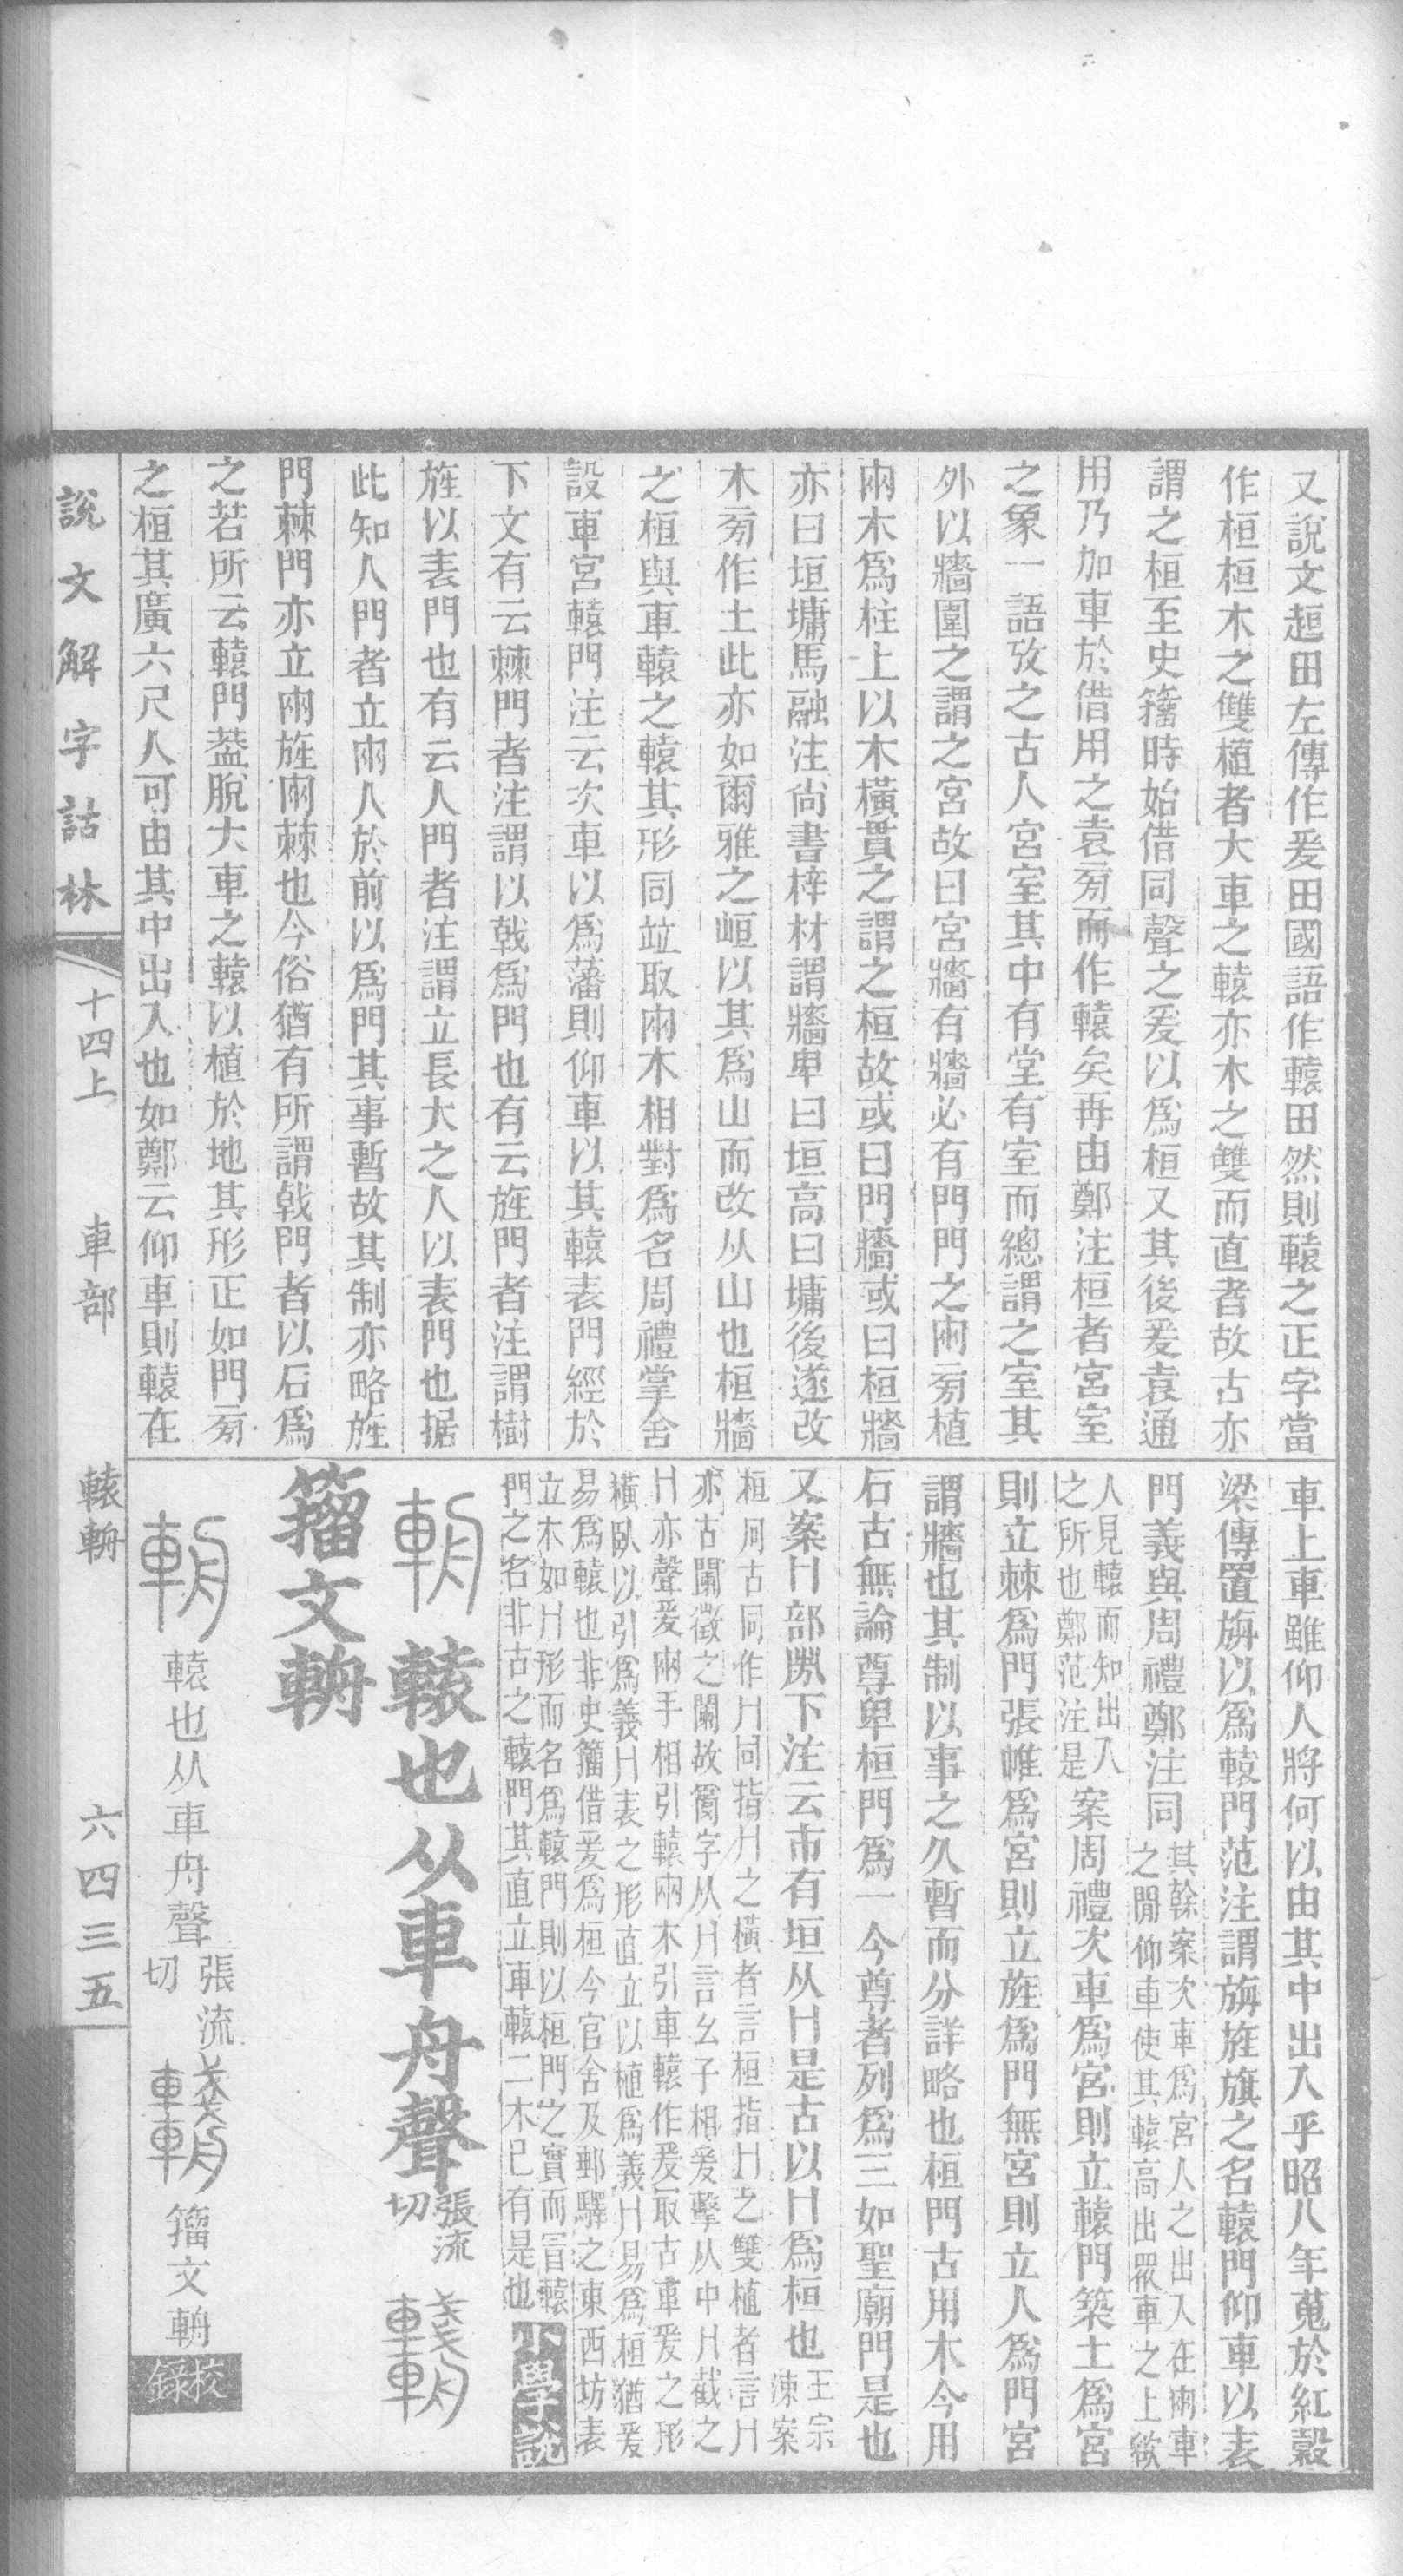 又說文趄田左傳作爰田國語作轅田然則轅之正字當
作桓桓木之雙植者大車之轅亦木之雙而直者故古亦
謂之桓至史籀時始借同聲之爰以爲桓又其後爰袁通
用乃加車於借用之袁㫄而作轅矣再由鄭注桓者宮室
之象一語攷之古人宮室其中有堂有室而總謂之室其
外以牆圍之謂之宮故曰宮牆有牆必有門門之兩㫄植
兩木爲柱上以木橫貫之謂之桓故或曰門牆或曰桓牆
亦曰垣墉馬融注尙書梓材謂牆卑曰垣高曰墉後遂改
木㫄作土此亦如爾雅之峘以其爲山而改从山也桓牆
之桓與車轅之轅其形同竝取兩木相對爲名周禮掌舍
設車宮轅門注云次車以爲藩則仰車以其轅表門經於
下文有云棘門者注謂以戟爲門也有云旌門者注謂樹
旌以表門也有云人門者注謂立長大之人以表門也据
此知人門者立兩人於前以爲門其事暫故其制亦略旌
門棘門亦立兩旌兩棘也今俗猶有所謂戟門者以石爲
之若所云轅門葢脫大車之轅以植於地其形正如門㫄
之桓其廣六尺人可由其中出入也如鄭云仰車則轅在
車上車雖仰人將何以由其中出入乎昭八年蒐於紅穀
梁傳置旃以爲轅門范注謂旃旌旗之名轅門仰車以表
門義與周禮鄭注同其榦案次車爲宮人之出入在兩車
之閒仰車使其轅高出眾車之上欲
人見轅而知出入
之所也鄭范注是案周禮次車爲宮則立轅門築土爲宮
則立棘爲門張帷爲宮則立旌爲門無宮則立人爲門宮
謂牆也其制以事之久暫而分詳略也桓門古用木今用
石古無論尊卑桓門爲一今尊者列爲三如聖廟門是也
又案冂部𡴆下注云市有垣从冂是古以冂爲桓也王宗
涑案
桓冋古同作冂同指冂之橫者言桓指冂之雙植者言冂
亦古闌徵之闌故𤔔字从冂言幺子相爰擊从中冂截之
冂亦聲爰兩手相引轅兩木引車轅作爰取古車爰之形
橫臥以引爲義冂表之形直立以植爲義冂易爲桓猶爰
易爲轅也非史籀借爰爲桓今官舍及郵驛之東西坊表
立木如冂形而名爲轅門則以桓門之實而冒轅
門之名非古之轅門其直立車轅二木已有是也小學說
輈 轅也从車舟聲張流
切
籀文輈
輈 轅也从車舟聲張流
切 籀文輈校
錄
說文解字詁林 十四上 車部 轅輈 六四三五